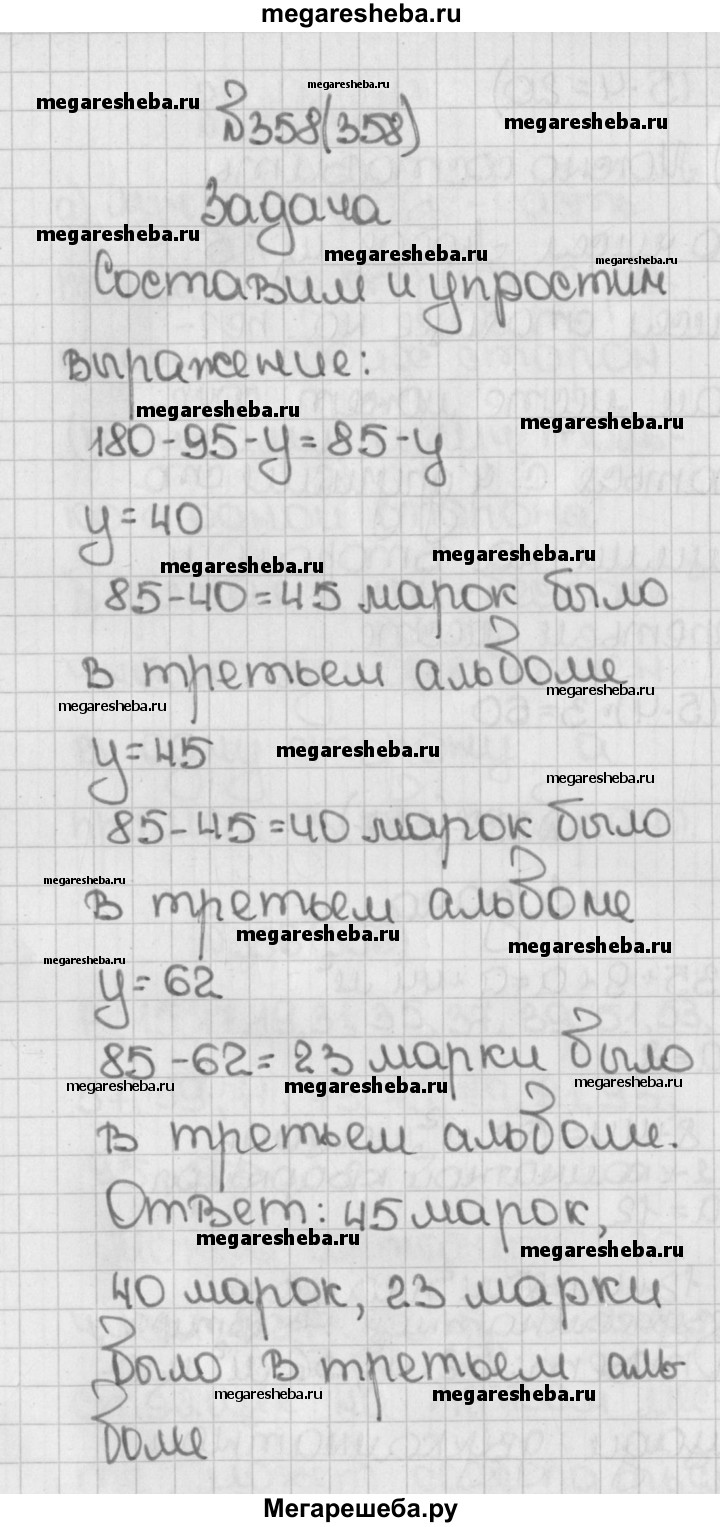 megaresheba.ru
megaresheba.ru
megaresheba.ru
№358(358)
megaresheba.ru
Задача
megaresheba.ru
megaresheba.ru
megaresheba.ru
Составим и упростим
выражение:
megaresheba.ru
megaresheba.ru
180-95-y=85-y
y=40
megaresheba.ru
megaresheba.ru
85-40=45 марок было
в третьем альбоме
megaresheba.ru
megaresheba.ru
y=45
megaresheba.ru
megaresheba.ru
85-45=40 марок было
megaresheba.ru
в третьем альбоме
megaresheba.ru
megaresheba.ru
megaresheba.ru
y=62
85-62=23 марки было
megaresheba.ru
megaresheba.ru
megaresheba.ru
в третьем альбоме.
Ответ: 45 марок,
megaresheba.ru
megaresheba.ru
40 марок, 23 марки
было в третьем аль-
megaresheba.ru
megaresheba.ru
боме
Мегарешеба.ру